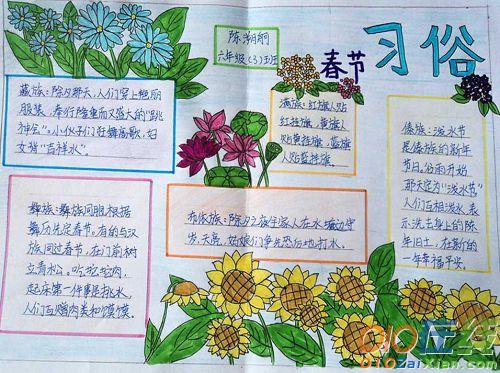 陈湖娟
六年级（3）班
春节
习俗
藏族：除夕那天，人们穿上艳丽
服装，奉行隆重而又盛大的“跳
神会”。小伙子们狂舞高歌，妇
女背“吉祥水”。
满族：红旗人贴
红挂旗，黄旗人
贴黄挂旗，蓝旗
人贴蓝挂旗
傣族：泼水节
是傣族的新年
节日。谷雨开始
那天定为“泼水节”
人们互相泼水表
示洗去身上的陈
年旧土，在新的
一年幸福平安。
彝族：彝族同胞根据
彝历先定春节。有的与汉
族同过春节，在门前树
立青松。吃坨坨肉，
起床第一件事是挑水，
人们互赠肉类和馍馍。
布依族：除夕之夜全家人在火塘边守
岁，天亮，姑娘们争先恐后地打水。
010在线
010zaixian.com